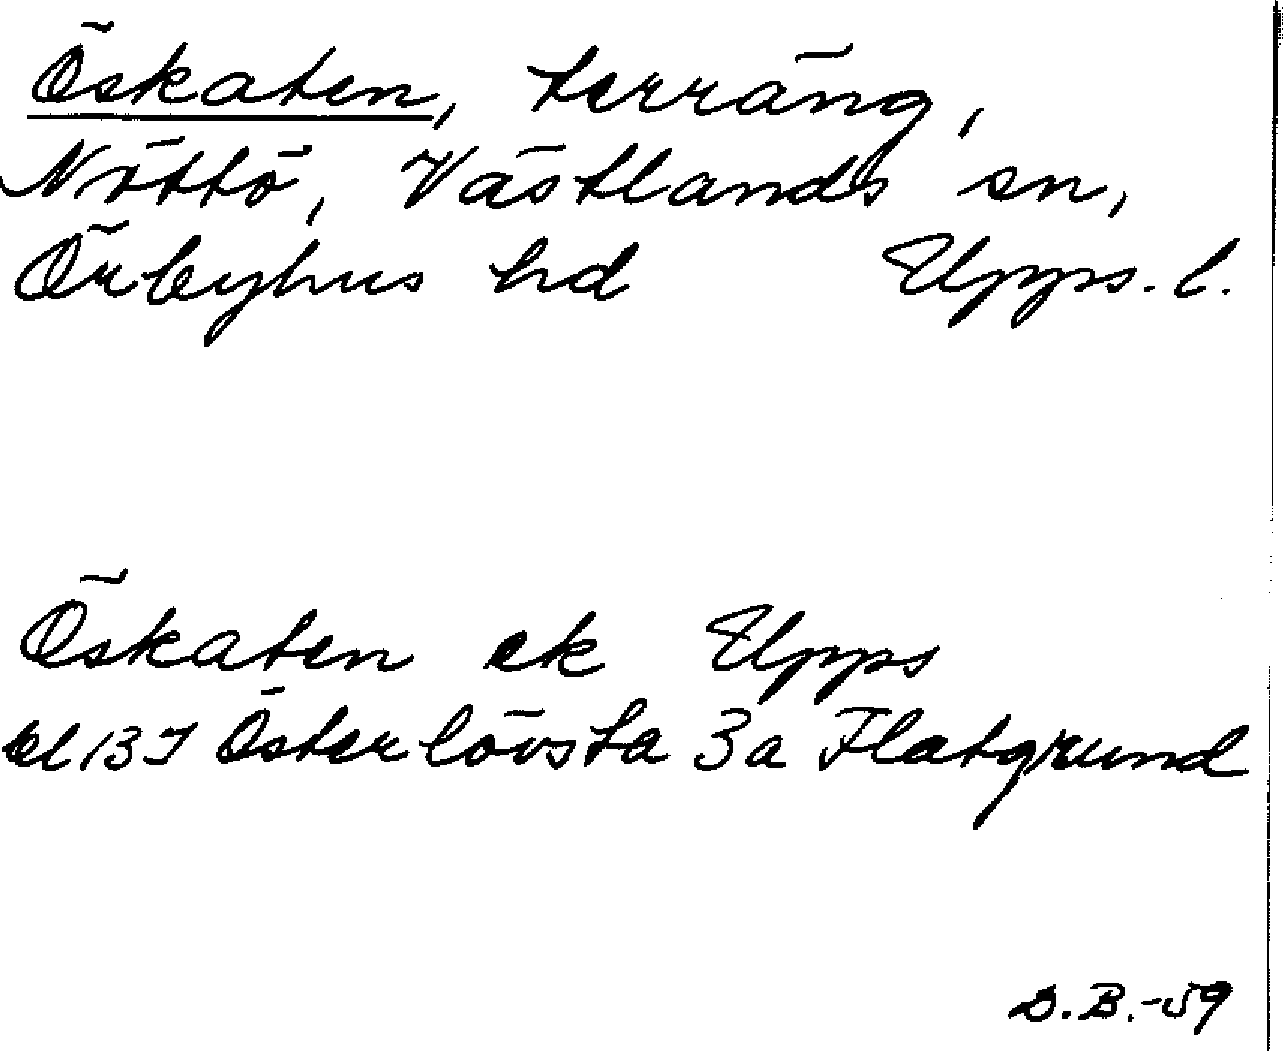 Öskaten, terräng,
Nöttö, Västlands sn,
Örbyhus hd Upps. l.
Öskaten ek Upps
bl 13 I Österlövsta 3a Flatgrund
D.B.-59